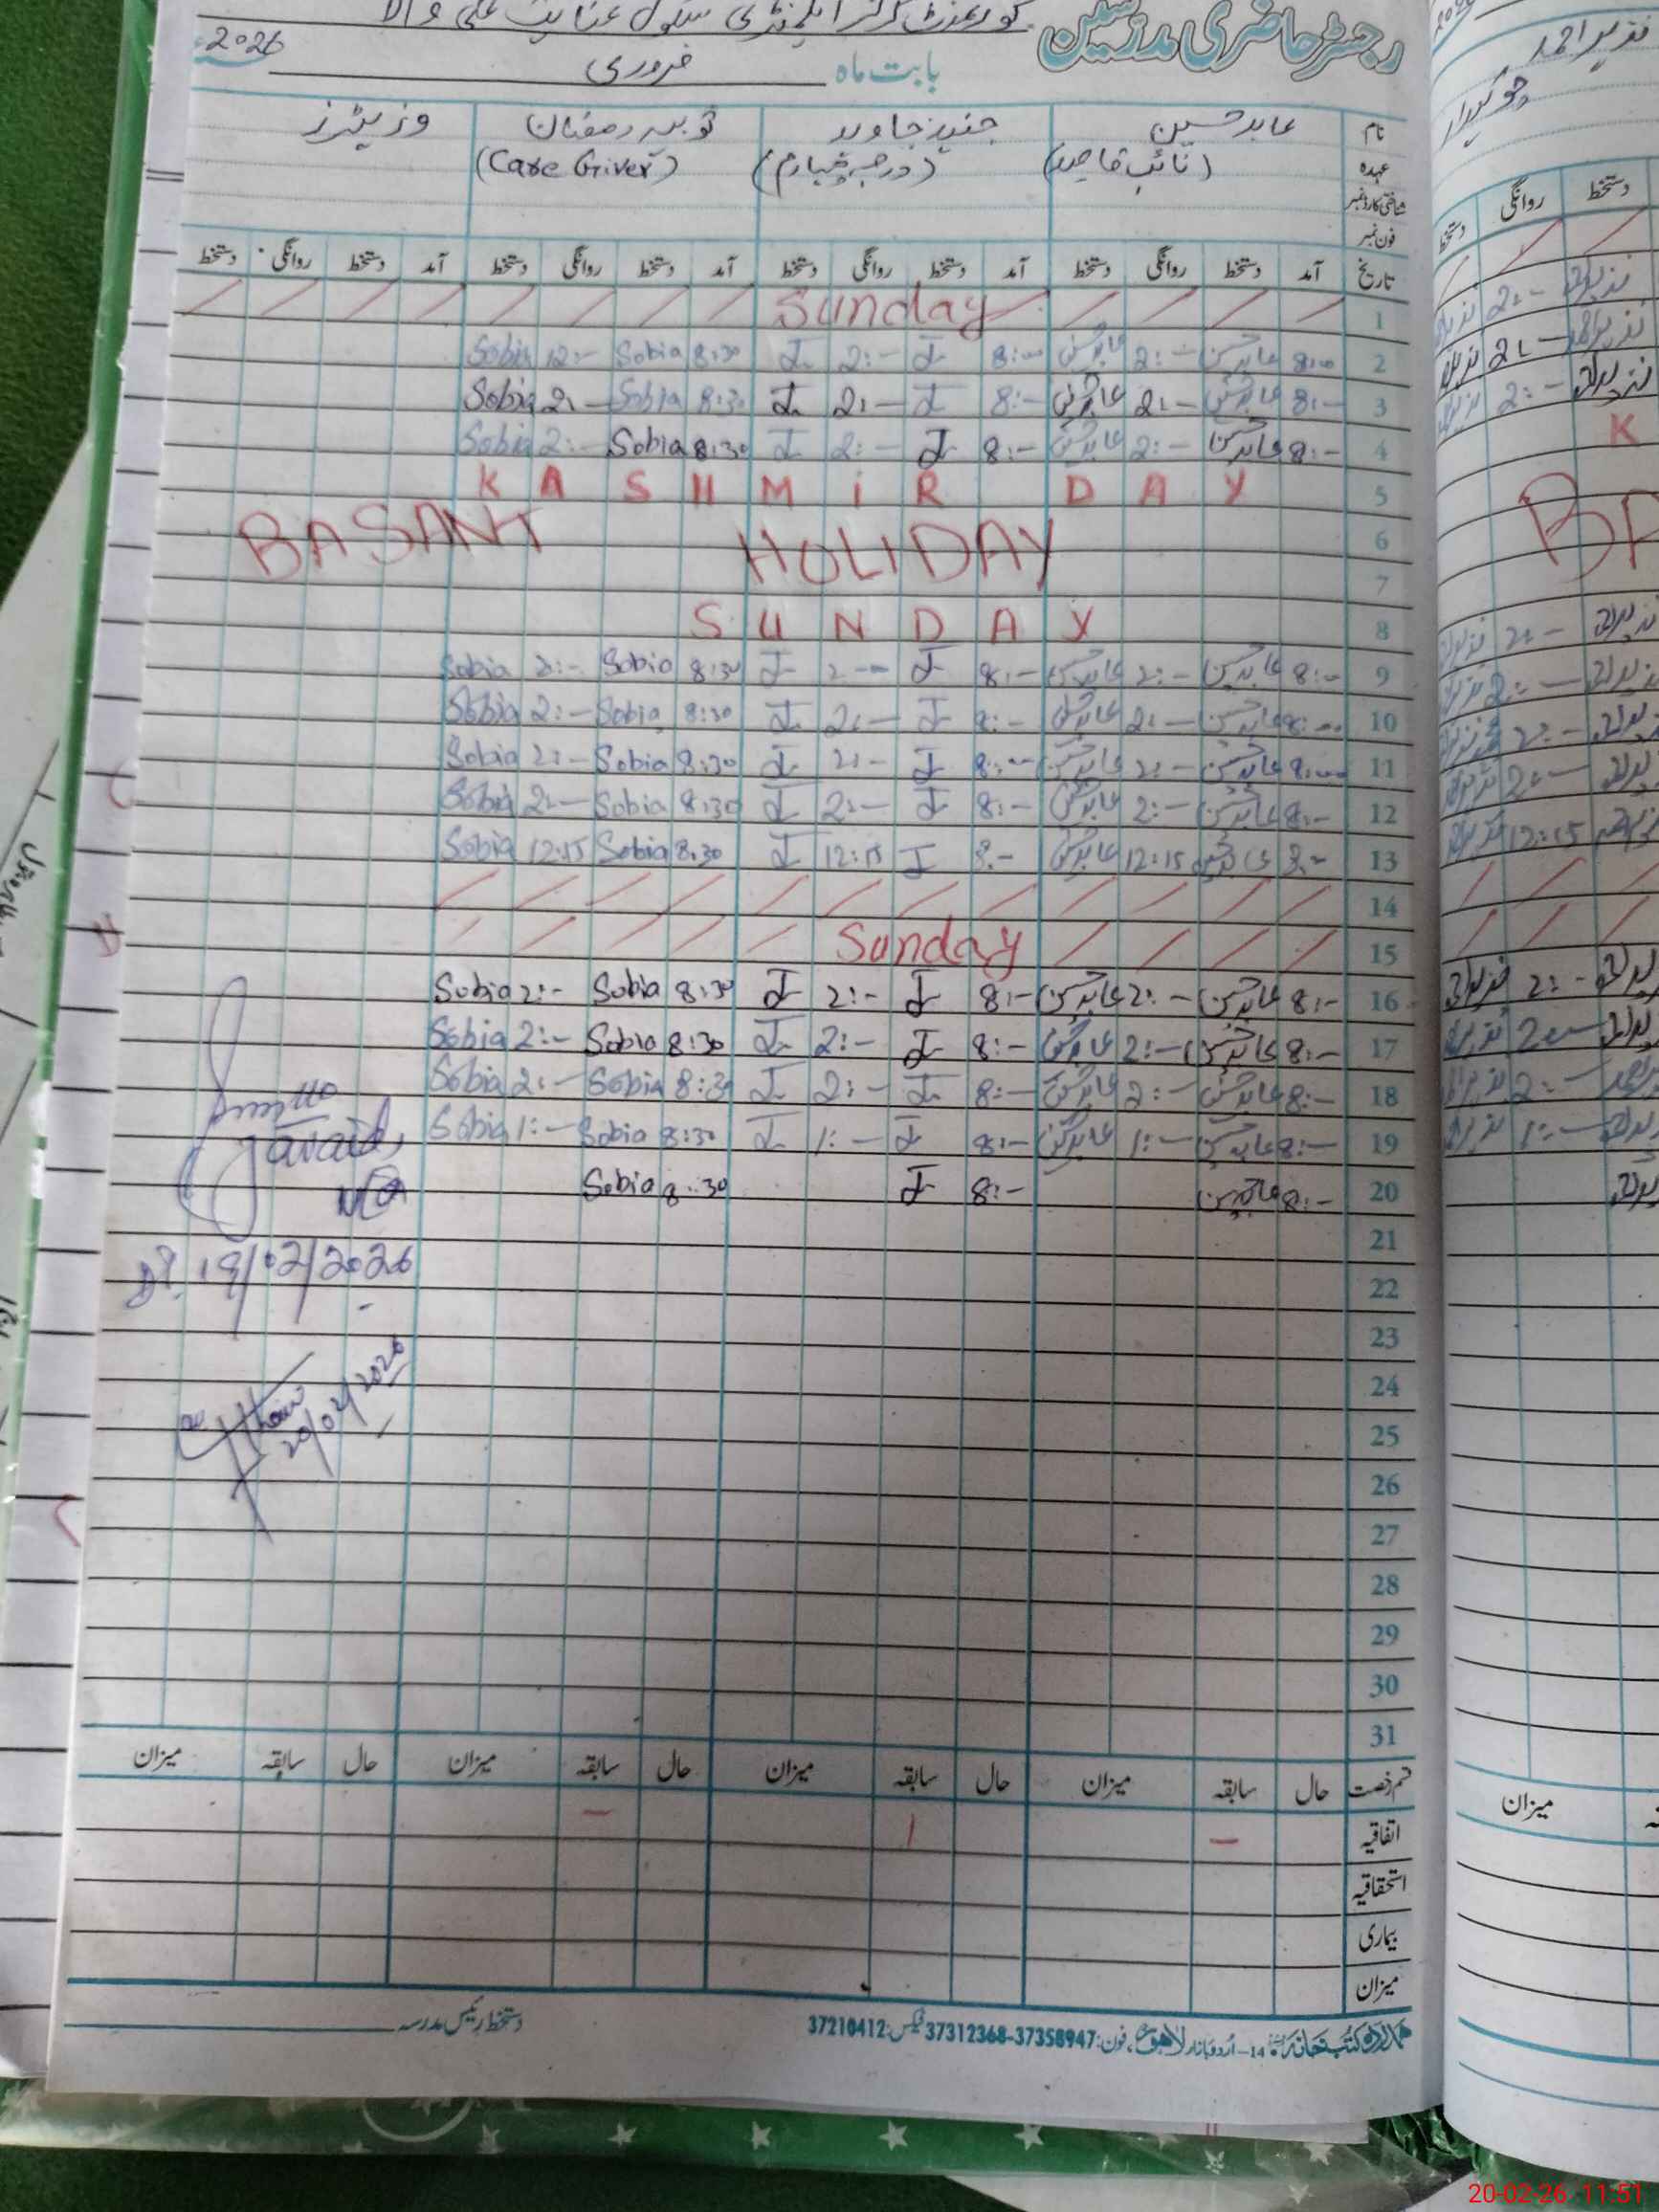 گورنمنٹ گرلز ایلیمنٹری سکول عنایت علی والا
رجسٹر حاضری مدرسین
بابت ماہ فروری 2026ء
نام عابد حسین جنید جاوید ثوبیہ رمضان وزیٹرز
عہدہ (نائب قاصد) (درجہ چہارم) (Care Giver)
شناختی کارڈ نمبر
فون نمبر
تاریخ آمد دستخط روانگی دستخط آمد دستخط روانگی دستخط آمد دستخط روانگی دستخط آمد دستخط روانگی دستخط
1 Sunday
2 8:00 عابد حسین 2:- عابد حسین 8:00 J 2:- J 8:30 Sobia 12:- Sobia
3 8:- عابد حسین 2:- عابد حسین 8:- J 2:- J 8:30 Sobia 2:- Sobia
4 8:- عابد حسین 2:- عابد حسین 8:- J 2:- J 8:30 Sobia 2:- Sobia
5 KASHMIR DAY
6 BASANT HOLIDAY
7
8 SUNDAY
9 8:- عابد حسین 2:- عابد حسین 8:- J 2 -- J 8:30 Sobia 2:- Sobia
10 8:00 عابد حسین 2:- عابد حسین 8:- J 2:- J 8:30 Sobia 2:- Sobia
11 8:00 عابد حسین 2:- عابد حسین 8:-- J 2:- J 8:30 Sobia 2:- Sobia
12 8:- عابد حسین 2:- عابد حسین 8:- J 2:- J 8:30 Sobia 2:- Sobia
13 8:- عابد حسین 12:15 عابد حسین 8:- J 12:15 J 8:30 Sobia 12:15 Sobia
14
15 Sunday
16 8:- عابد حسین 2:- عابد حسین 8:- J 2:- J 8:30 Sobia 2:- Sobia
17 8:- عابد حسین 2:- عابد حسین 8:- J 2:- J 8:30 Sobia 2:- Sobia
18 8:- عابد حسین 2:- عابد حسین 8:- J 2:- J 8:30 Sobia 2:- Sobia
19 8:- عابد حسین 1:- عابد حسین 8:- J 1:- J 8:30 Sobia 1:- Sobia
20 8:- عابد حسین 8:- J 8:30 Sobia
Javaid
19/02/2026
20/02/2026
21
22
23
24
25
26
27
28
29
30
31
قسم رخصت حال سابقہ میزان حال سابقہ میزان حال سابقہ میزان حال سابقہ میزان
اتفاقیہ - 1 -
استحقاقیہ
بیماری
میزان
دستخط رئیس مدرسہ
ہمدرد کتب خانہ 14-اردو بازار لاہور، فون: 37358947-37312368 فیکس: 37210412
نذیر احمد
چوکیدار
دستخط روانگی دستخط
2:-
2:-
2:-
K
BA
2:-
2:-
2:-
2:-
12:15
2:-
2
2:-
1:-
میزان
20-02-26 11:51